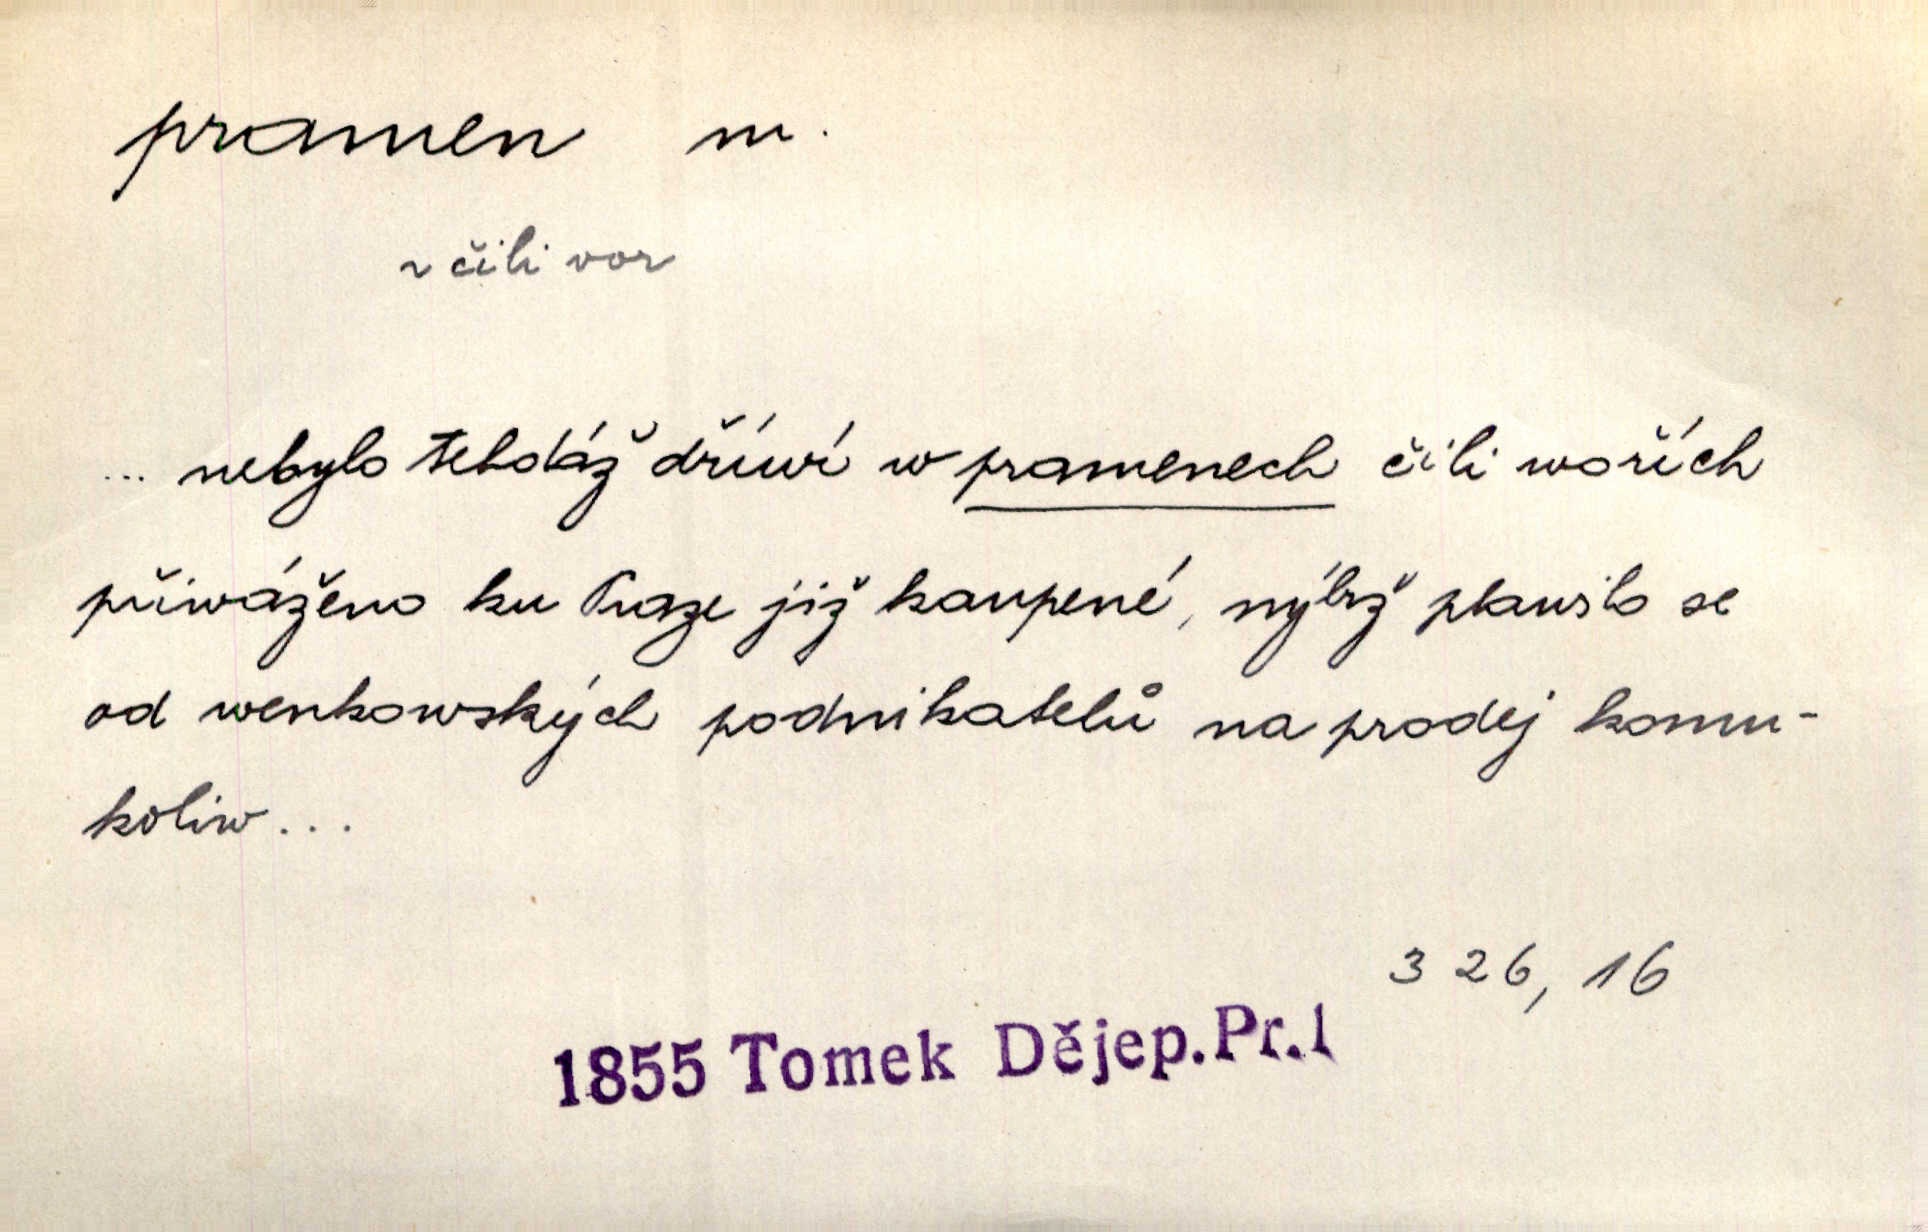 pramen m.
~ čili vor
... nebylo tehdáž dříwí w pramenech čili wořích
přiwáženo ku Praze již kaupené, nýbrž plawilo se
od wenkowských podnikatelů na prodej komu-
koliw ...
326, 16
1855 Tomek Dějep. Pr. 1